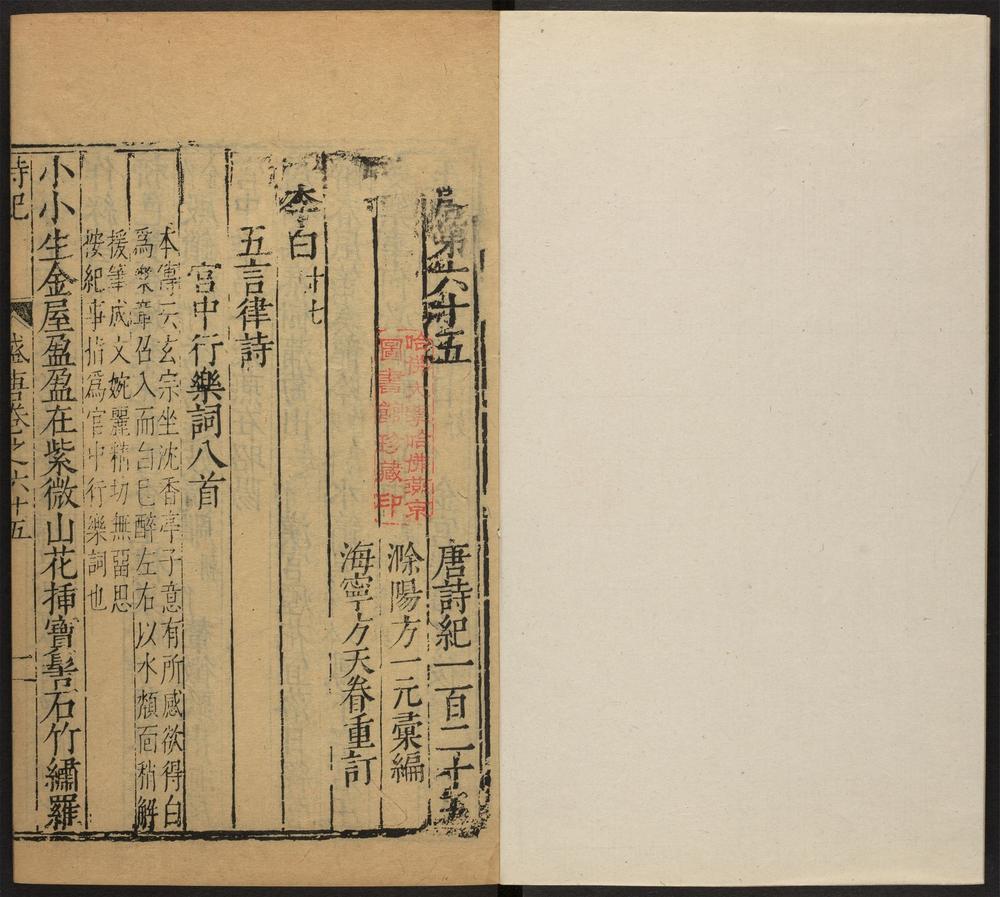 唐第六十五
唐詩紀一百二十五
滁陽方一元彙編
海寧方天眷重訂
李白 十七
五言律詩
宮中行樂詞八首
本傳云玄宗坐沈香亭子意有所感欲得白
爲樂章召入而白已醉左右以水頮面稍解
援筆成文婉麗精切無留思
按紀事指爲宮中行樂詞也
小小生金屋盈盈在紫微山花揷寶髻石竹繡羅
詩紀
盛唐卷之六十五
一
哈佛大學哈佛燕京
圖書館珍藏印